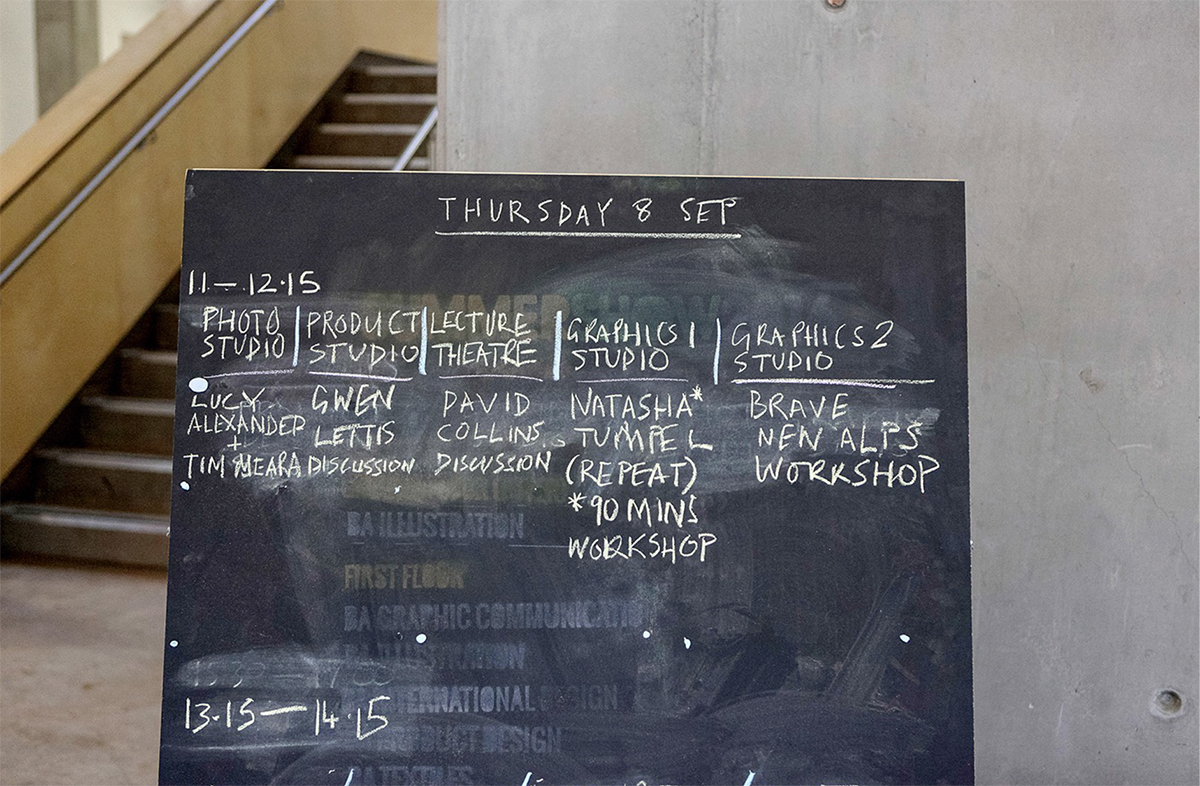 THURSDAY 8 SEP
11 — 12.15
PHOTO STUDIO
PRODUCT STUDIO
LECTURE THEATRE
GRAPHICS 1 STUDIO
GRAPHICS 2 STUDIO
LUCY
ALEXANDER
+
TIM MEARA
GWEN
LETTIS
DISCUSSION
DAVID
COLLINS
DISCUSSION
NATASHA*
TUMPEL
(REPEAT)
*90 MINS
WORKSHOP
BRAVE
NEW ALPS
WORKSHOP
SUMMER SHOW
BA ILLUSTRATION
FIRST FLOOR
BA GRAPHIC COMMUNICATION
BA ILLUSTRATION
INTERNATIONAL DESIGN
PRODUCT DESIGN
TEXTILES
13.15 — 14.15